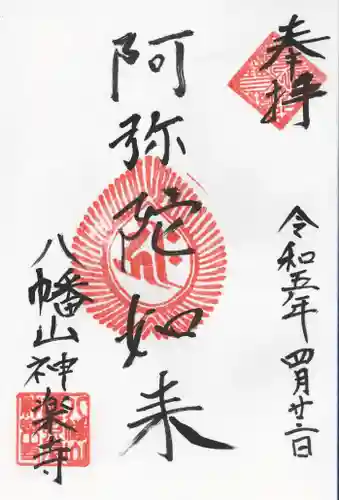 奉拝
令和五年 四月廿二日
阿弥陀如来
八幡山神楽寺